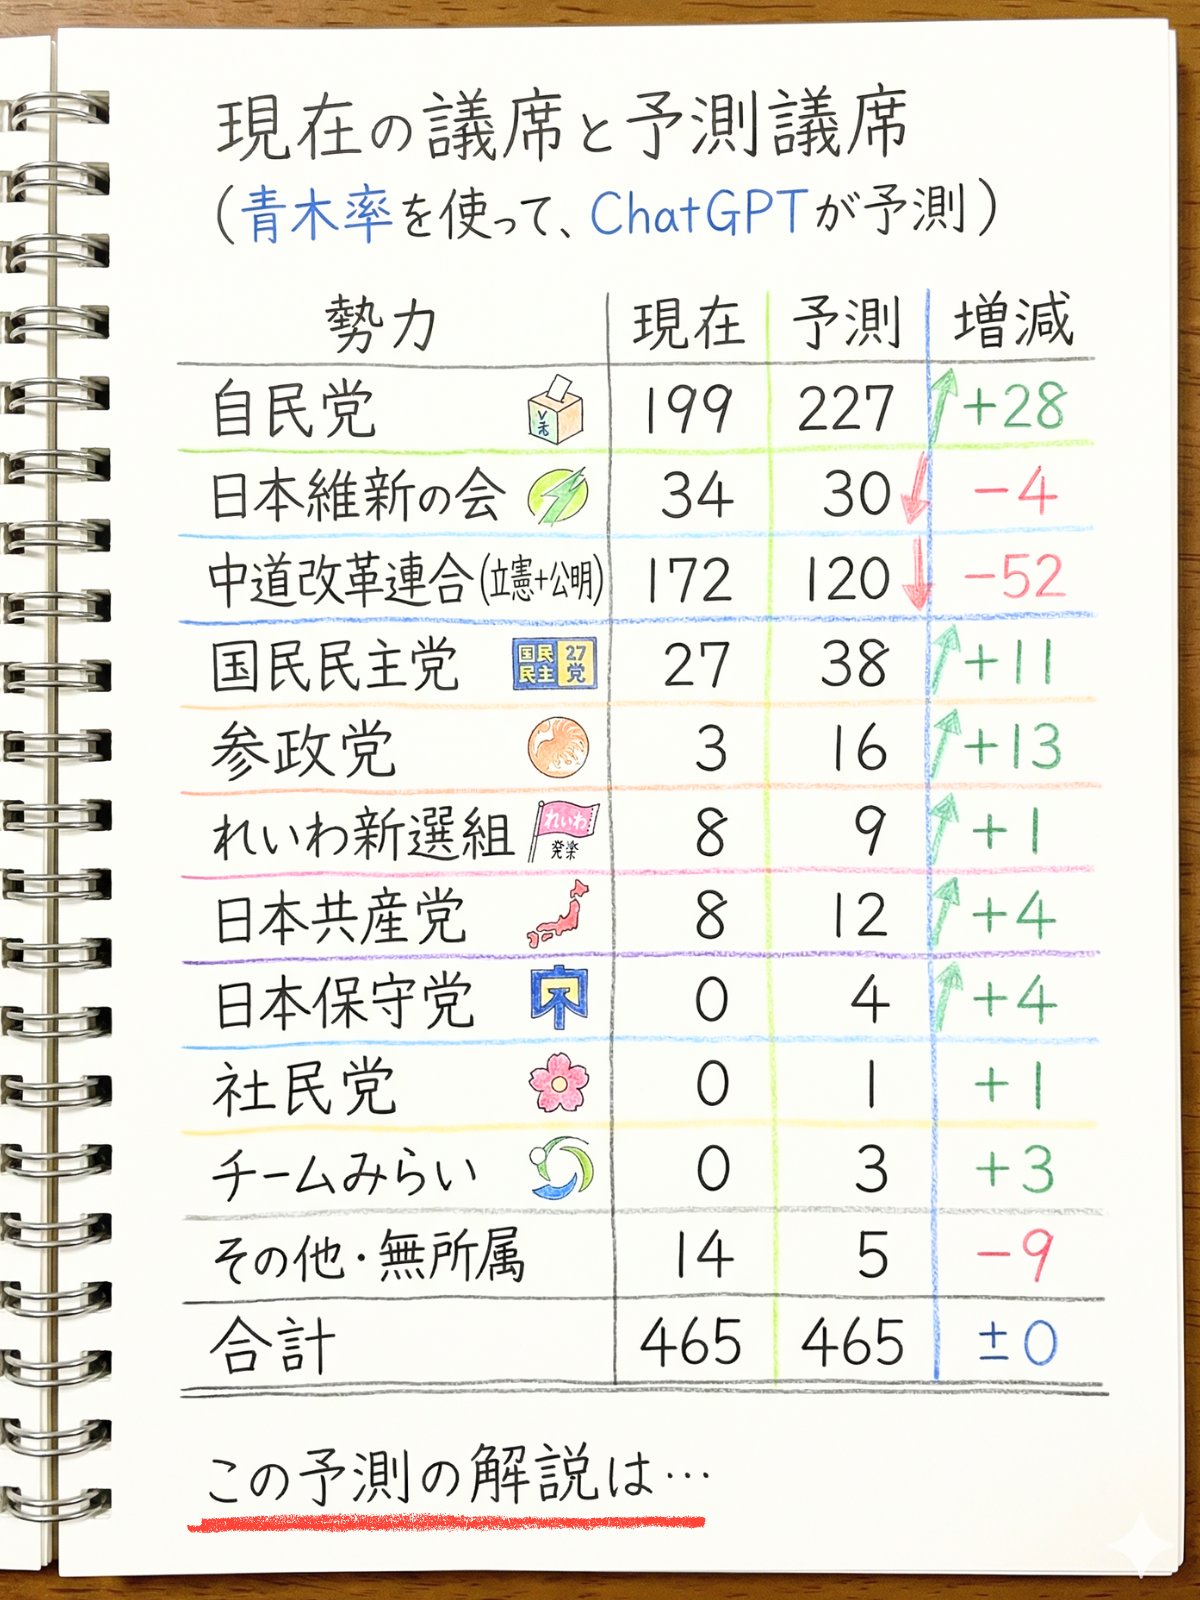 現在の議席と予測議席
(青木率を使って、ChatGPTが予測)
勢力 現在 予測 増減
自民党 199 227 +28
日本維新の会 34 30 -4
中道改革連合(立憲+公明) 172 120 -52
国民民主党 国民民主27党 27 38 +11
参政党 3 16 +13
れいわ新選組 れいわ 8 9 +1
日本共産党 8 12 +4
日本保守党 0 4 +4
社民党 0 1 +1
チームみらい 0 3 +3
その他・無所属 14 5 -9
合計 465 465 ±0
この予測の解説は…